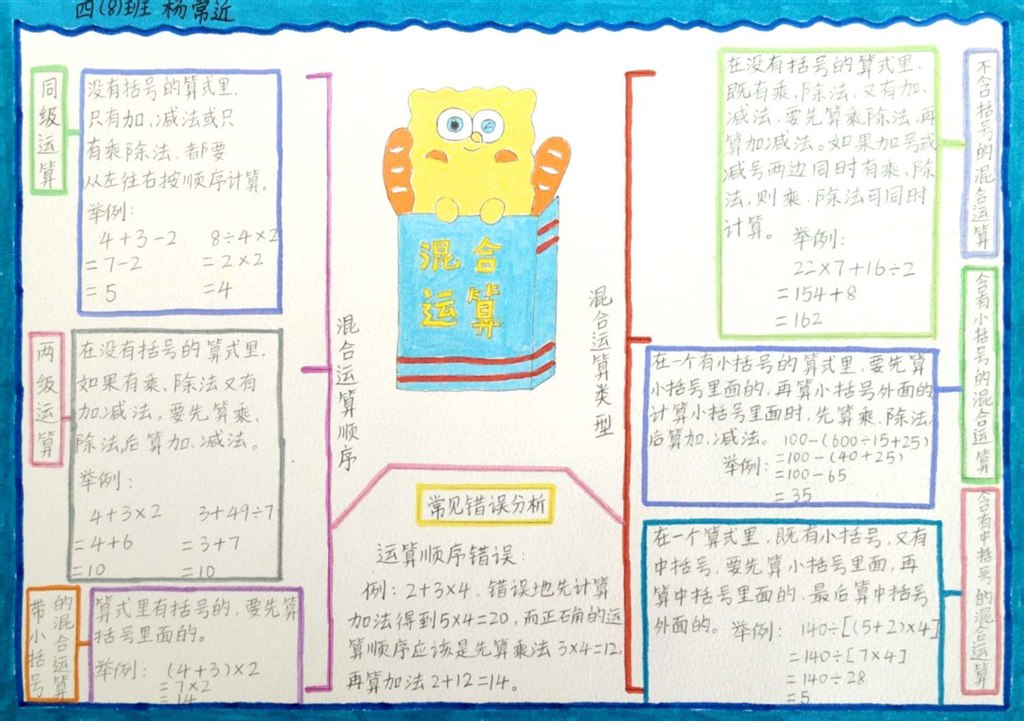 四(8)班 杨常近
同级运算
没有括号的算式里,
只有加、减法或只
有乘除法,都要
从左往右按顺序计算。
举例:
4+3-2 8÷4×2
=7-2 =2×2
=5 =4
两级运算
在没有括号的算式里,
如果有乘、除法又有
加、减法,要先算乘、
除法,后算加、减法。
举例:
4+3×2 3+49÷7
=4+6 =3+7
=10 =10
带小括号
的混合运算
算式里有括号的,要先算
括号里面的。
举例: (4+3)×2
=7×2
=14
混合运算顺序
混合
运算
混合运算类型
常见错误分析
运算顺序错误:
例:2+3×4,错误地先计算
加法得到5×4=20,而正确的运
算顺序应该是先算乘法3×4=12,
再算加法2+12=14。
不含括号的混合运算
在没有括号的算式里,
既有乘、除法,又有加、
减法,要先算乘除法,再
算加减法。如果加号或
减号两边同时有乘、除
法,则乘、除法可同时
计算。 举例:
22×7+16÷2
=154+8
=162
含有小括号的混合运算
在一个有小括号的算式里,要先算
小括号里面的,再算小括号外面的
计算小括号里面时,先算乘、除法,
后算加、减法。 100-(600÷15+25)
举例: =100-(40+25)
=100-65
=35
含有中括号的混合运算
在一个算式里,既有小括号,又有
中括号,要先算小括号里面,再
算中括号里面的,最后算中括号
外面的。举例: 140÷[(5+2)×4]
=140÷[7×4]
=140÷28
=5